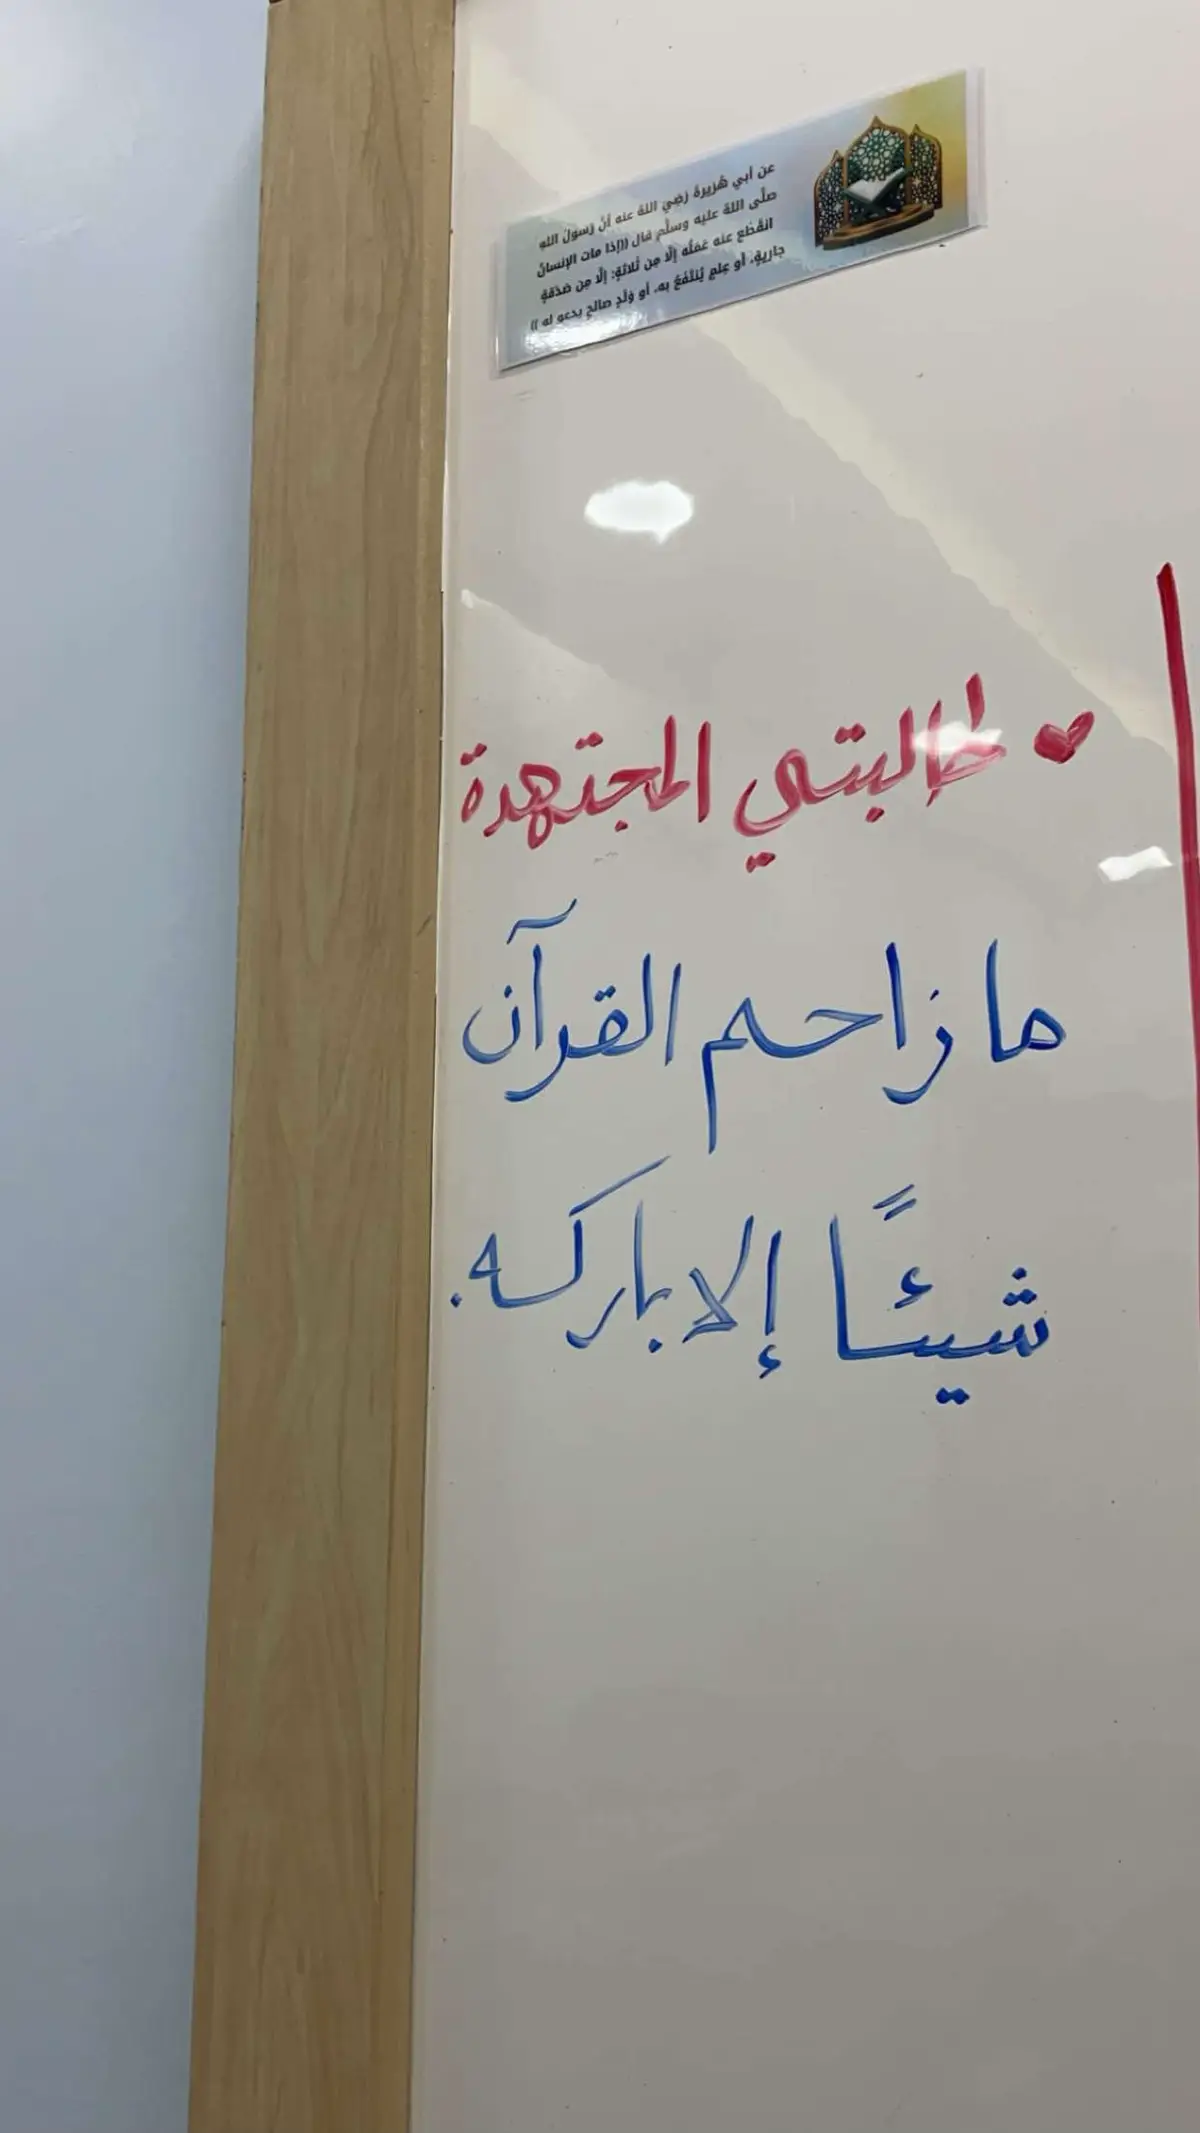 عن أبي هُريرةَ رَضِيَ اللهُ عنه أنَّ رَسولَ اللهِ
صلَّى اللهُ عليه وسلَّم قال ((إذا مات الإنسانُ
انقَطَع عنه عَمَلُه إلَّا مِن ثَلاثةٍ: إلَّا مِن صَدَقةٍ
جاريةٍ، أو عِلمٍ يُنتَفَعُ به، أو وَلَدٍ صالحٍ يدعو له ))
طالبتي المجتهدة
ما زاحم القرآن
شيئًا إلا باركه.